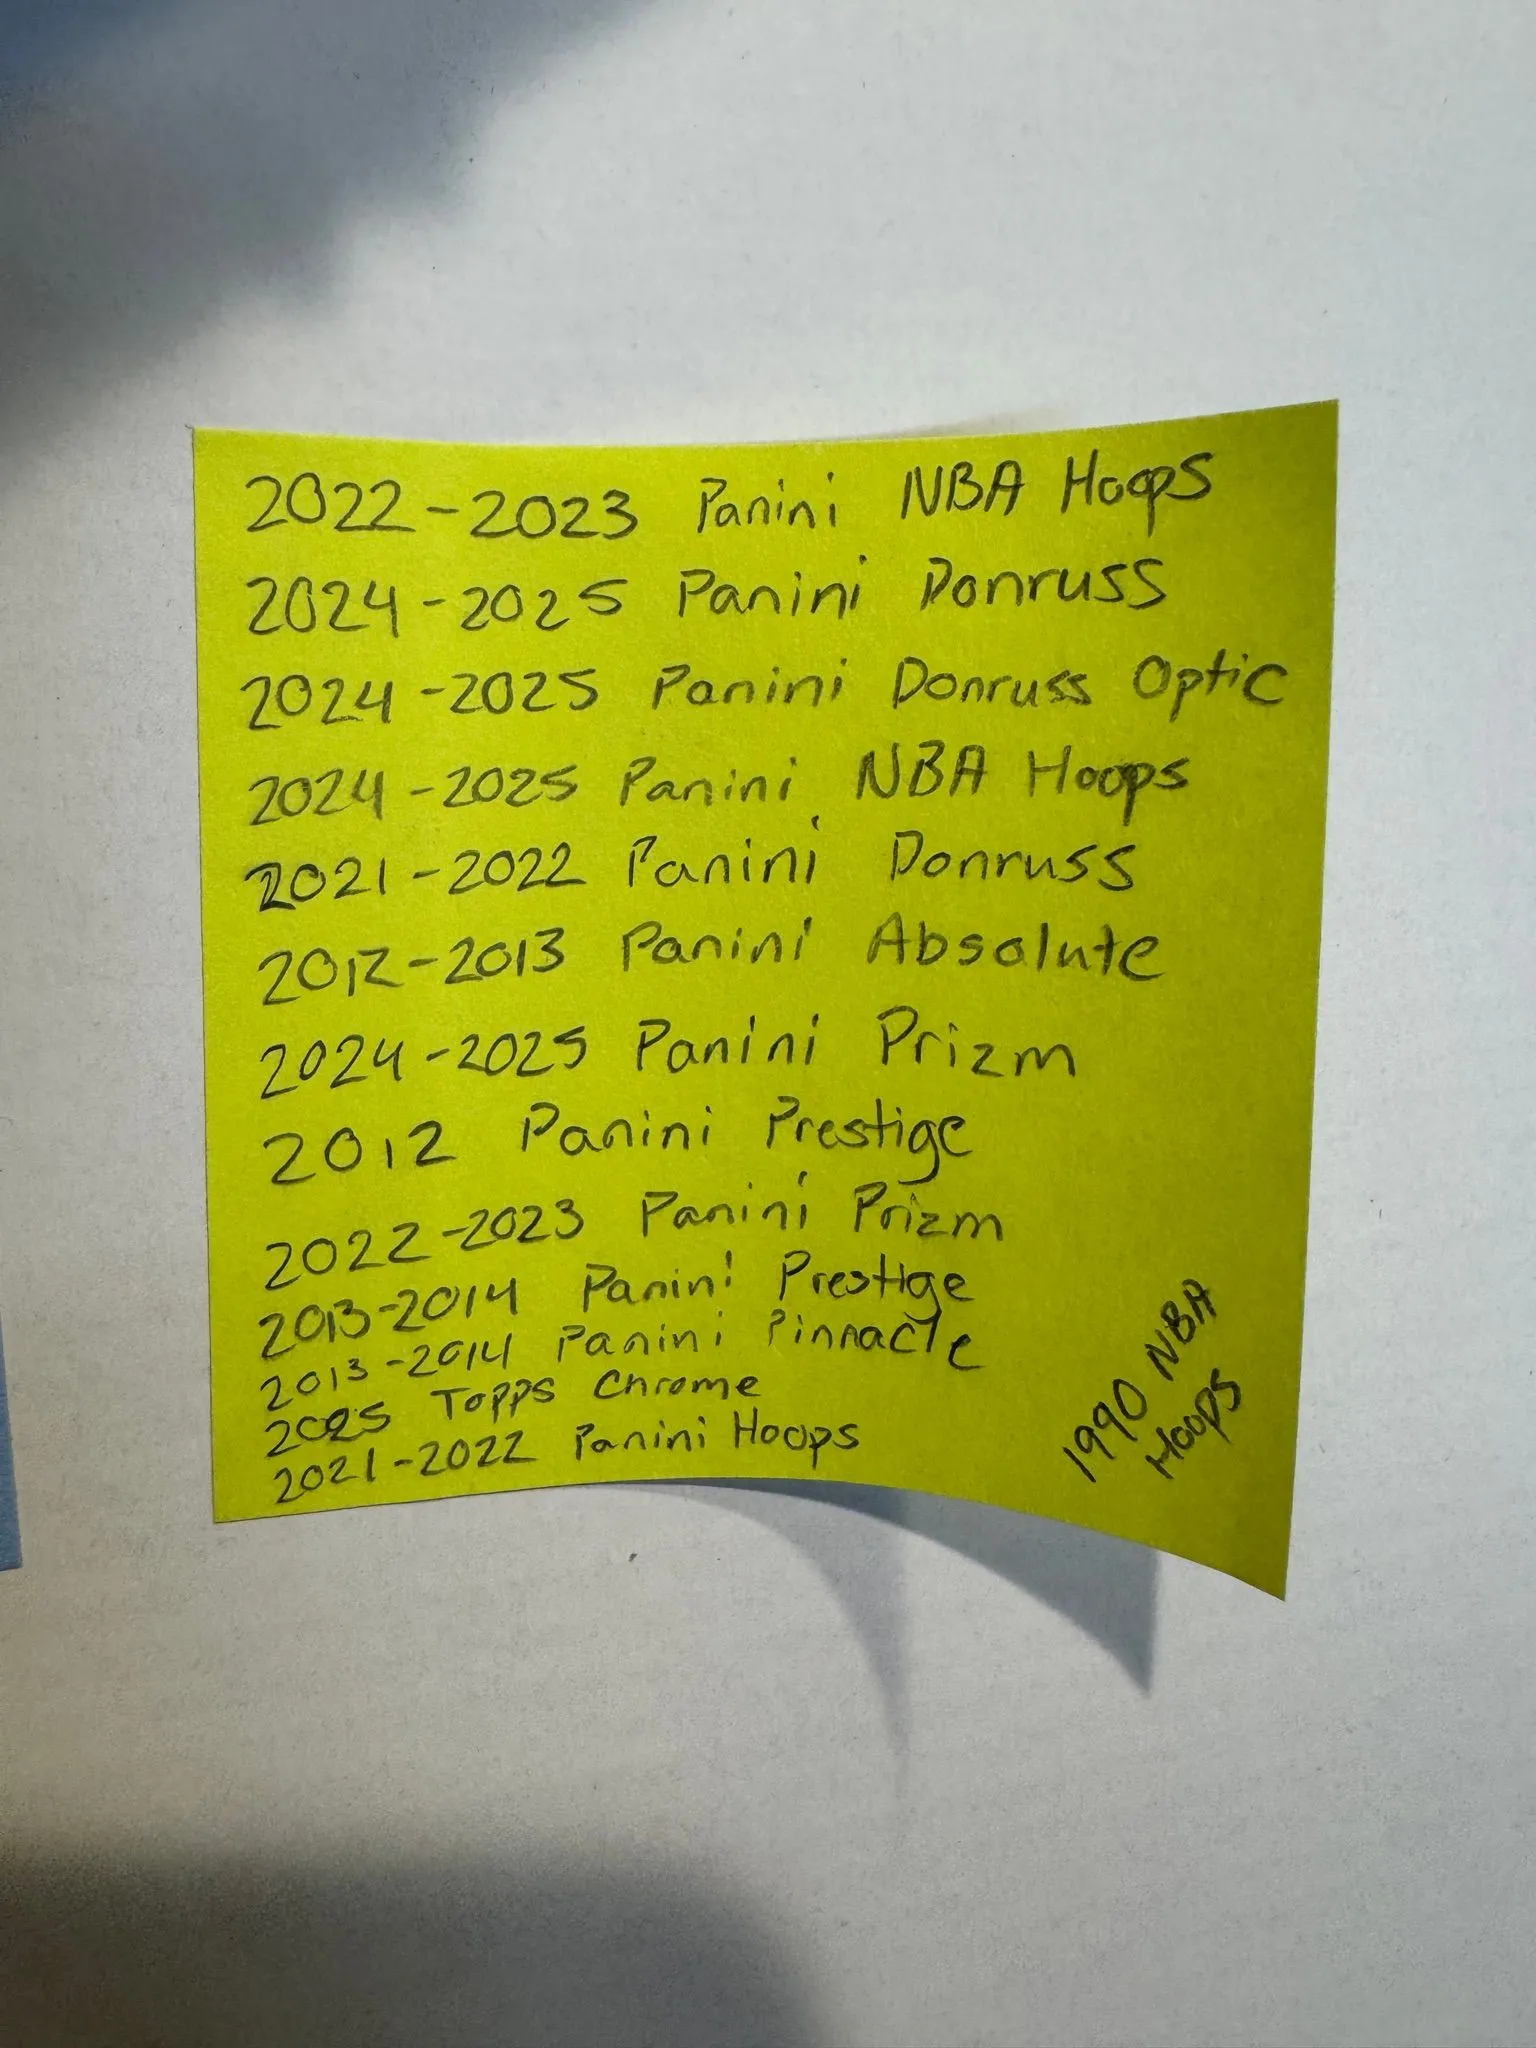 2022-2023 Panini NBA Hoops
2024-2025 Panini Donruss
2024-2025 Panini Donruss Optic
2024-2025 Panini NBA Hoops
2021-2022 Panini Donruss
2012-2013 Panini Absolute
2024-2025 Panini Prizm
2012 Panini Prestige
2022-2023 Panini Prizm
2013-2014 Panini Prestige
2013-2014 Panini Pinnacle
2025 Topps Chrome
2021-2022 Panini Hoops
1990 NBA
Hoops